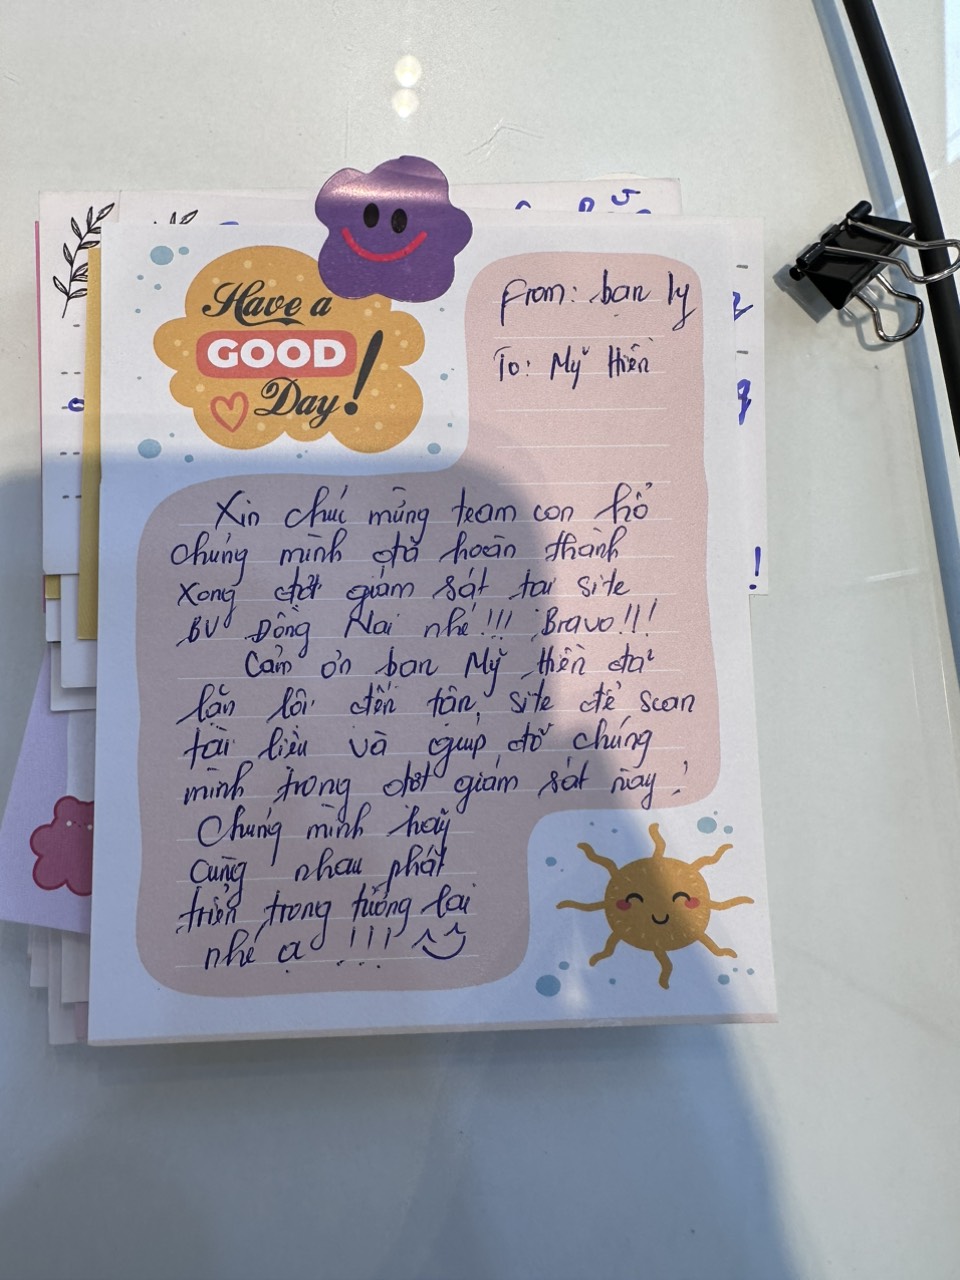 Have a
GOOD
Day!
From: bạn ly
To: Mỹ Hiền
Xin chúc mừng team con hổ
chúng mình đã hoàn thành
xong đợt giám sát tại site
BV Đồng Nai nhé!!! Bravo!!!
Cảm ơn bạn Mỹ Hiền đã
lặn lội đến tận site để scan
tài liệu và giúp đỡ chúng
mình trong đợt giám sát này!
Chúng mình hãy
cùng nhau phát
triển trong tương lai
nhé ạ !!!